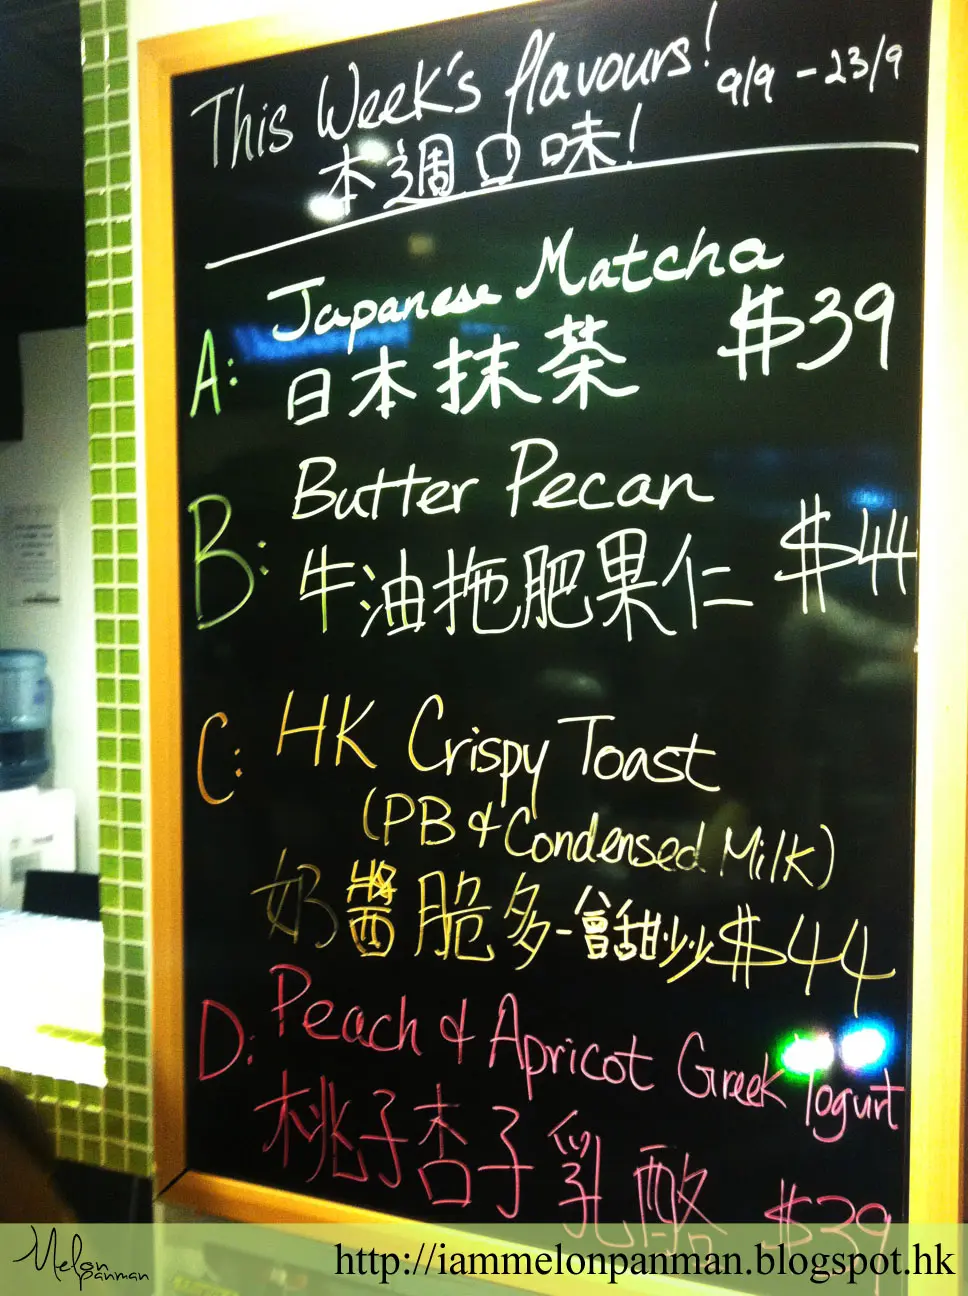 This Week's flavours! 9/9 - 23/9
本週口味!
Japanese Matcha
A: 日本抹茶 $39
Butter Pecan
B: 牛油拖肥果仁 $44
C: HK Crispy Toast
(PB & Condensed Milk)
奶醬脆多 - $44
D: Peach & Apricot Greek Yogurt
桃子杏子乳酪 $39
Melon
panman
http://iammelonpanman.blogspot.hk